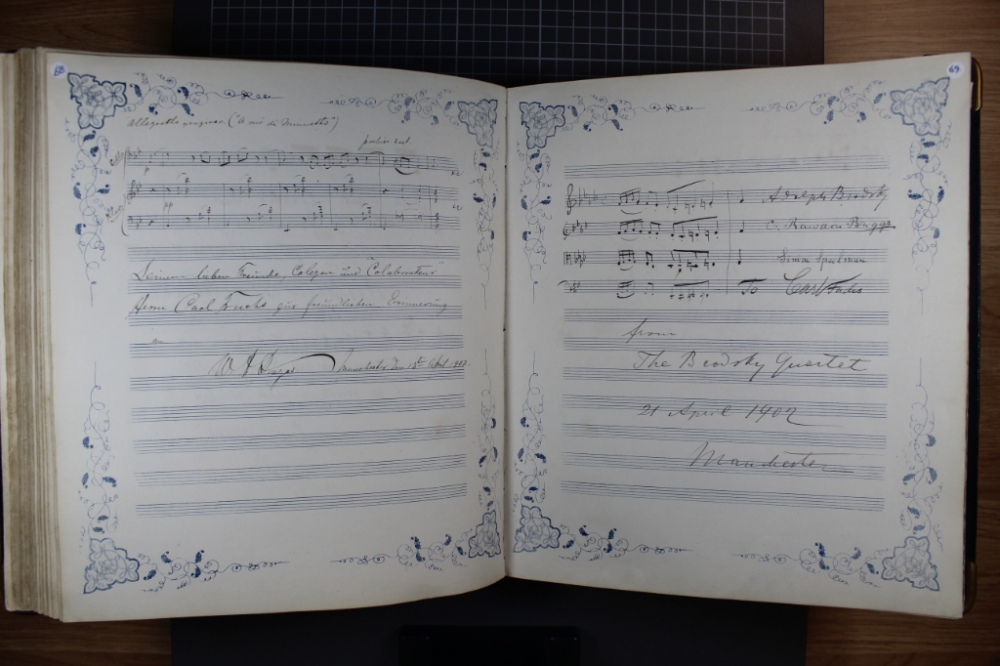 Allegretto grazioso ("A avi di Minuetto")
Cello
p
pp
Seinem lieben Freunde, Collegen und "Colaborateur"
Herrn Carl Fuchs zur freundlichen Erinnerung
an
Manchester den 13ten April
69
Adolph Brodsky
C. Rawdon Briggs
Simon Speelman
To Carl Fuchs
from
The Brodsky Quartet
21 April 1902
Manchester